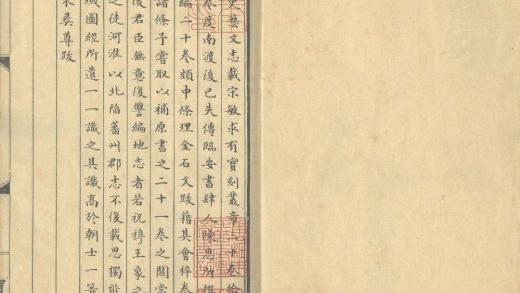 史藝文志載宋敏求有寶刻叢章二十卷
卷度南渡後已失傳臨安書肆人陳思所撰
編二十卷頗中條理金石文跋籍其會稡
諸條予嘗取以補原書之二十一卷之闕
後君臣無意復讐編地志者若祝穆王象之
之徒河淮以北陷蕃州郡志不復載思獨能
域圖經所遺一一識之其識高於朝士一等
朱彝尊跋